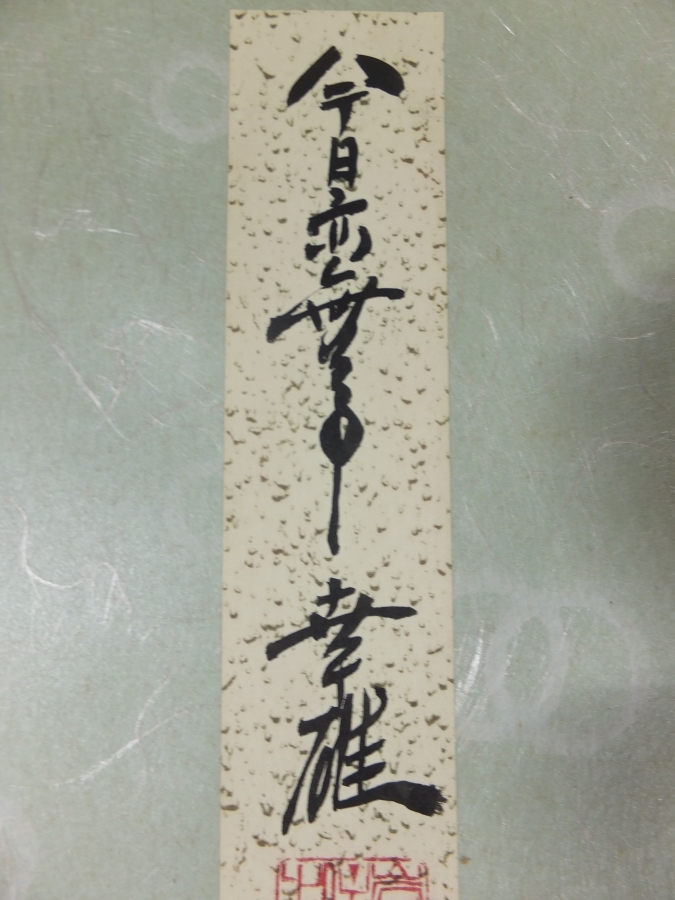 今日亦無事
幸雄